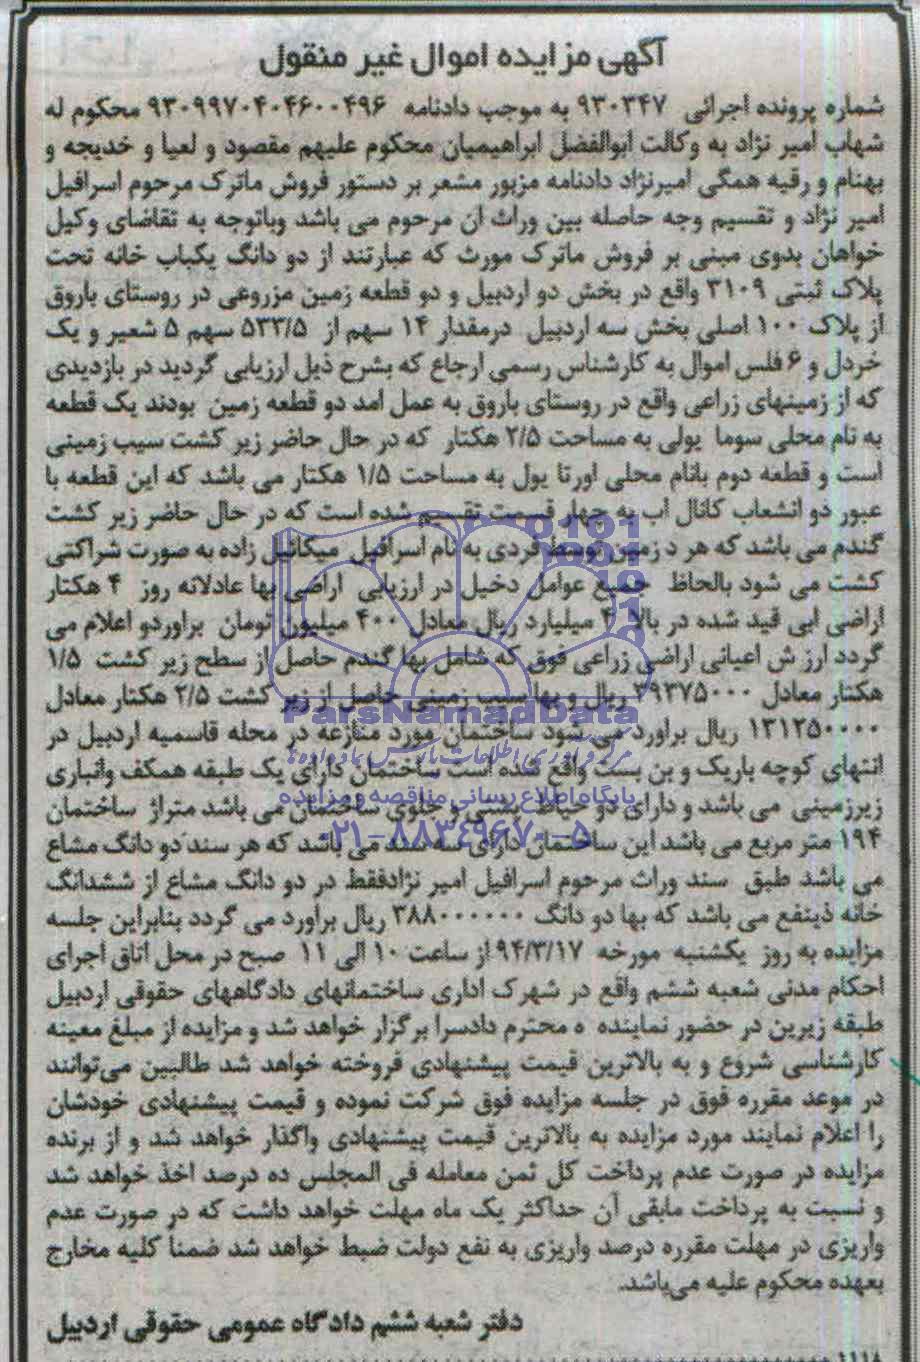 آگهی مزایده اموال غیر منقول
شماره پرونده اجرائی ۹۳۰۳۴۷ به موجب دادنامه ۹۳۰۹۹۷۰۴۰۴۶۰۰۴۹۶ محکوم له
شهاب امیر نژاد به وکالت ابوالفضل ابراهیمیان محکوم علیهم مقصود و لعیا و خدیجه و
بهنام و رقیه همگی امیرنژاد دادنامه مزبور مشعر بر دستور فروش ماترک مرحوم اسرافیل
امیر نژاد و تقسیم وجه حاصله بین وراث ان مرحوم می باشد وباتوجه به تقاضای وکیل
خواهان بدوی مبنی بر فروش ماترک مورث که عبارتند از دو دانگ یکباب خانه تحت
پلاک ثبتی ۳۱۰۹ واقع در بخش دو اردبیل و دو قطعه زمین مزروعی در روستای باروق
از پلاک ۱۰۰ اصلی بخش سه اردبیل درمقدار ۱۴ سهم از ۵۳۳/۵ سهم ۵ شعیر و یک
خردل و ۶ فلس اموال به کارشناس رسمی ارجاع که بشرح ذیل ارزیابی گردید در بازدیدی
که از زمینهای زراعی واقع در روستای باروق به عمل امد دو قطعه زمین بودند یک قطعه
به نام محلی سوما یولی به مساحت ۲/۵ هکتار که در حال حاضر زیر کشت سیب زمینی
است و قطعه دوم بانام محلی اورتا یول به مساحت ۱/۵ هکتار می باشد که این قطعه با
عبور دو انشعاب کانال اب به چهار قسمت تقسیم شده است که در حال حاضر زیر کشت
گندم می باشد که هر د زمین توسط فردی به نام اسرافیل میکائیل زاده به صورت شراکتی
کشت می شود بالحاظ جمیع عوامل دخیل در ارزیابی اراضی بها عادلانه روز ۴ هکتار
اراضی ابی قید شده در بالا ۴ میلیارد ریال معادل ۴۰۰ میلیون تومان براوردو اعلام می
گردد ارز ش اعیانی اراضی زراعی فوق که شامل بها گندم حاصل از سطح زیر کشت ۱/۵
هکتار معادل ۳۹۳۷۵۰۰۰ ریال و بها سیب زمینی حاصل از زیر کشت ۲/۵ هکتار معادل
ParsNamadData
۱۳۱۲۵۰۰۰۰ ریال براورد می شود ساختمان مورد منازعه در محله قاسمیه اردبیل در
انتهای کوچه باریک و بن بست واقع شده است ساختمان دارای یک طبقه همکف وانباری
پایگاه اطلاع رسانی مناقصه و مزایده
زیرزمینی می باشد و دارای دو حیاط پشتی و جلوی ساختمان می باشد متراژ ساختمان
۰۲۱-۸۸۳۴۹۶۷۰-۵
۱۹۴ متر مربع می باشد این ساختمان دارای سه سند می باشد که هر سند دو دانگ مشاع
می باشد طبق سند وراث مرحوم اسرافیل امیر نژادفقط در دو دانگ مشاع از ششدانگ
خانه ذینفع می باشد که بها دو دانگ ۳۸۸۰۰۰۰۰۰ ریال براورد می گردد بنابراین جلسه
مزایده به روز یکشنبه مورخه ۹۴/۳/۱۷ از ساعت ۱۰ الی ۱۱ صبح در محل اتاق اجرای
احکام مدنی شعبه ششم واقع در شهرک اداری ساختمانهای دادگاههای حقوقی اردبیل
طبقه زیرین در حضور نماینده ه محترم دادسرا برگزار خواهد شد و مزایده از مبلغ معینه
کارشناسی شروع و به بالاترین قیمت پیشنهادی فروخته خواهد شد طالبین می‌توانند
در موعد مقرره فوق در جلسه مزایده فوق شرکت نموده و قیمت پیشنهادی خودشان
را اعلام نمایند مورد مزایده به بالاترین قیمت پیشنهادی واگذار خواهد شد و از برنده
مزایده در صورت عدم پرداخت کل ثمن معامله فی المجلس ده درصد اخذ خواهد شد
و نسبت به پرداخت مابقی آن حداکثر یک ماه مهلت خواهد داشت که در صورت عدم
واریزی در مهلت مقرره درصد واریزی به نفع دولت ضبط خواهد شد ضمنا کلیه مخارج
بعهده محکوم علیه می‌باشد.
دفتر شعبه ششم دادگاه عمومی حقوقی اردبیل